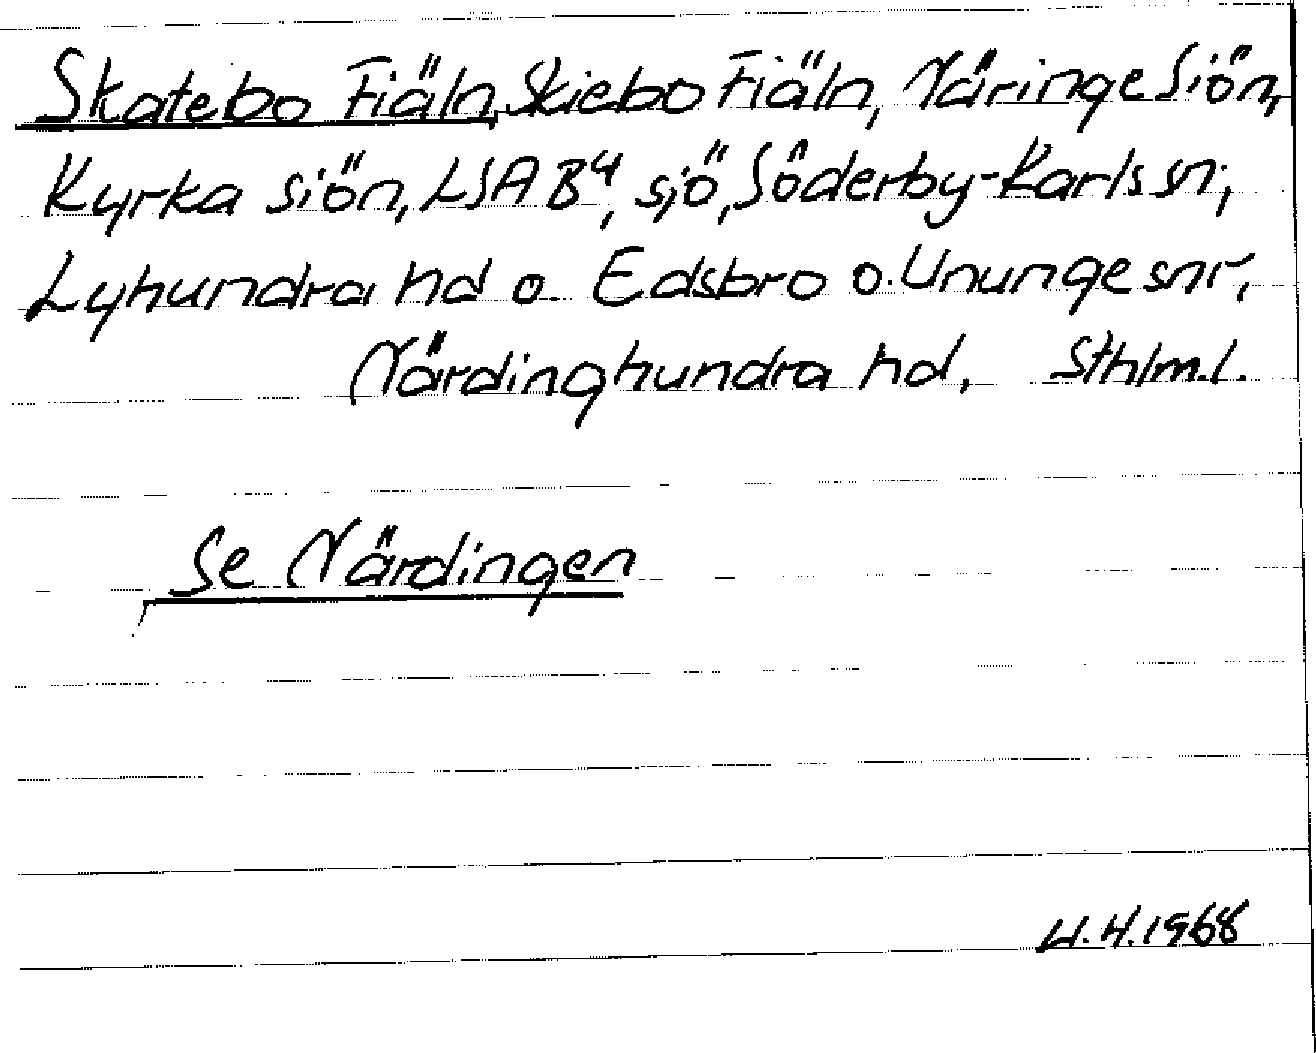 Skatebo Fiäln, Skiebo Fiäln, Näringe Siön,
Kyrka siön, LSA B4, sjö, Söderby-Karls sn,
Lyhundra hd o. Edsbro o. Ununge snr,
Närdinghundra hd, Sthlm.l.
Se Närdingen
4.4.1968